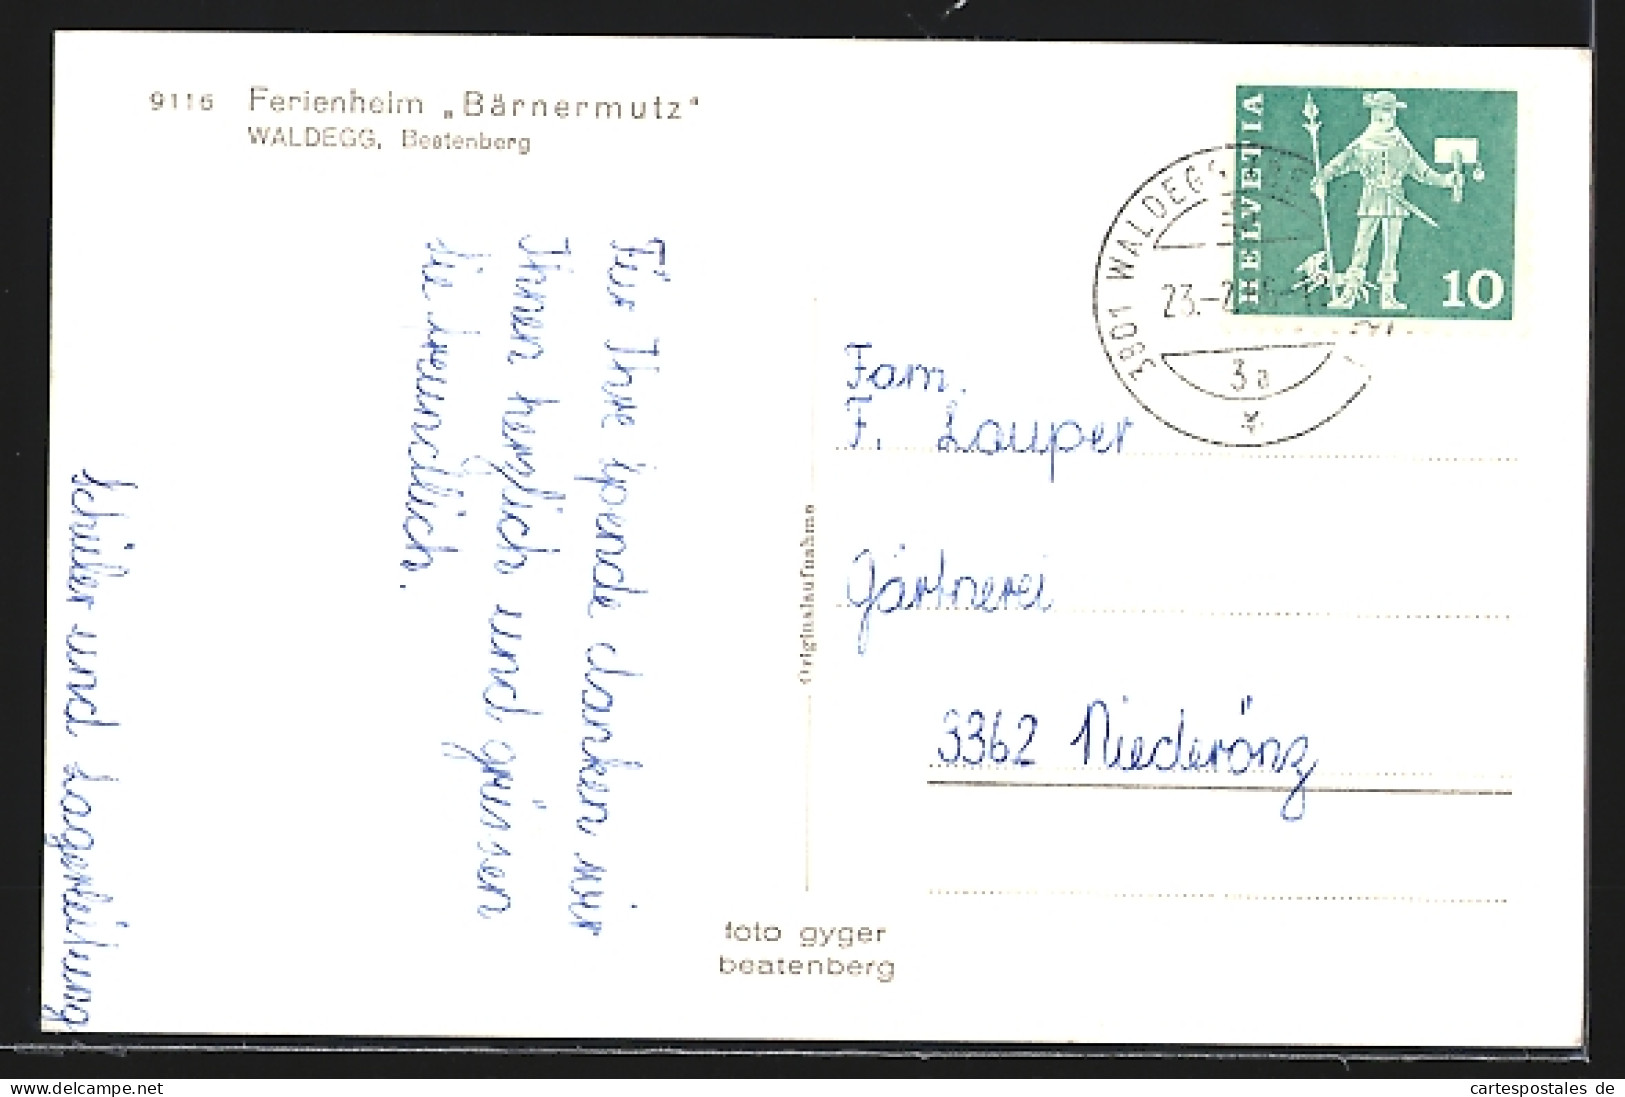 9116 Ferienheim „Bärnermutz"
WALDEGG, Beatenberg
HELVETIA
10
3801 WALDEGG
23.-2
3a
Für Ihre Spende danken wir
Ihnen herzlich und grüssen
Sie freundlich.
Schüler und Lagerleitung
Originalaufnahme
Fam.
F. Lauper
Gärtnerei
3362 Niederönz
foto gyger
beatenberg
www.cartespostales.de
cartespostales de